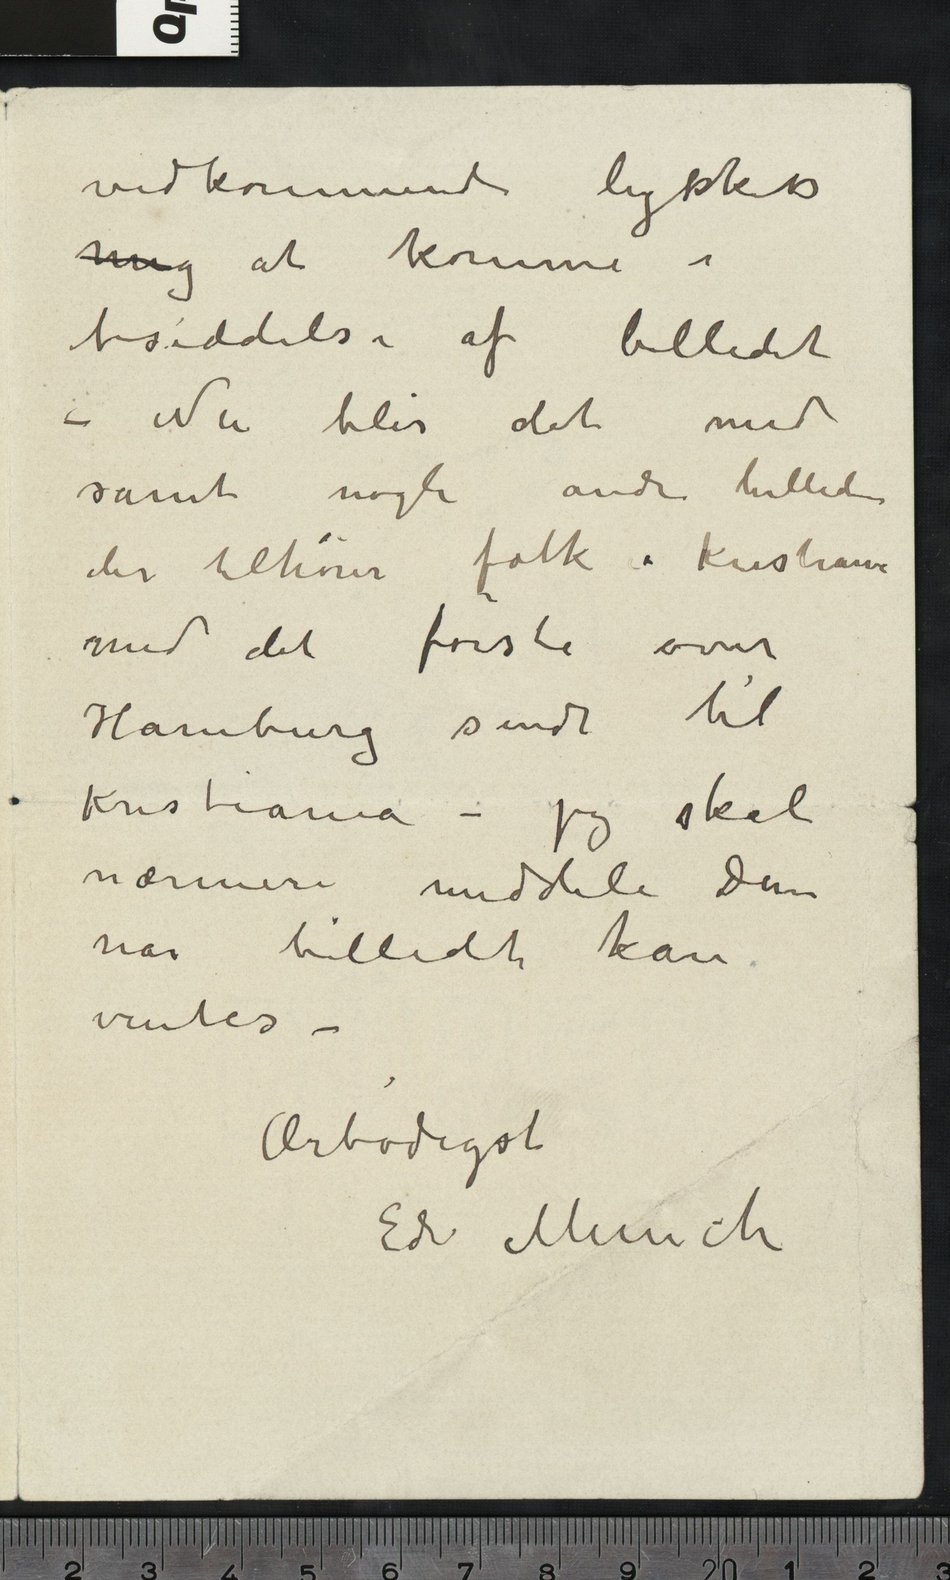 vedkommende lykkets
mig at komme i
besiddelse af billedet
– Nu blir det med
samt nogle andre billeder
der tilhører folk i Kristiania
med det første over
Hamburg sendt til
Kristiania – jeg skal
nærmere meddele Dem
når billedet kan
ventes –
Ærbødigst
Edv Munch
2 3 4 5 6 7 8 9 20 1 2 3